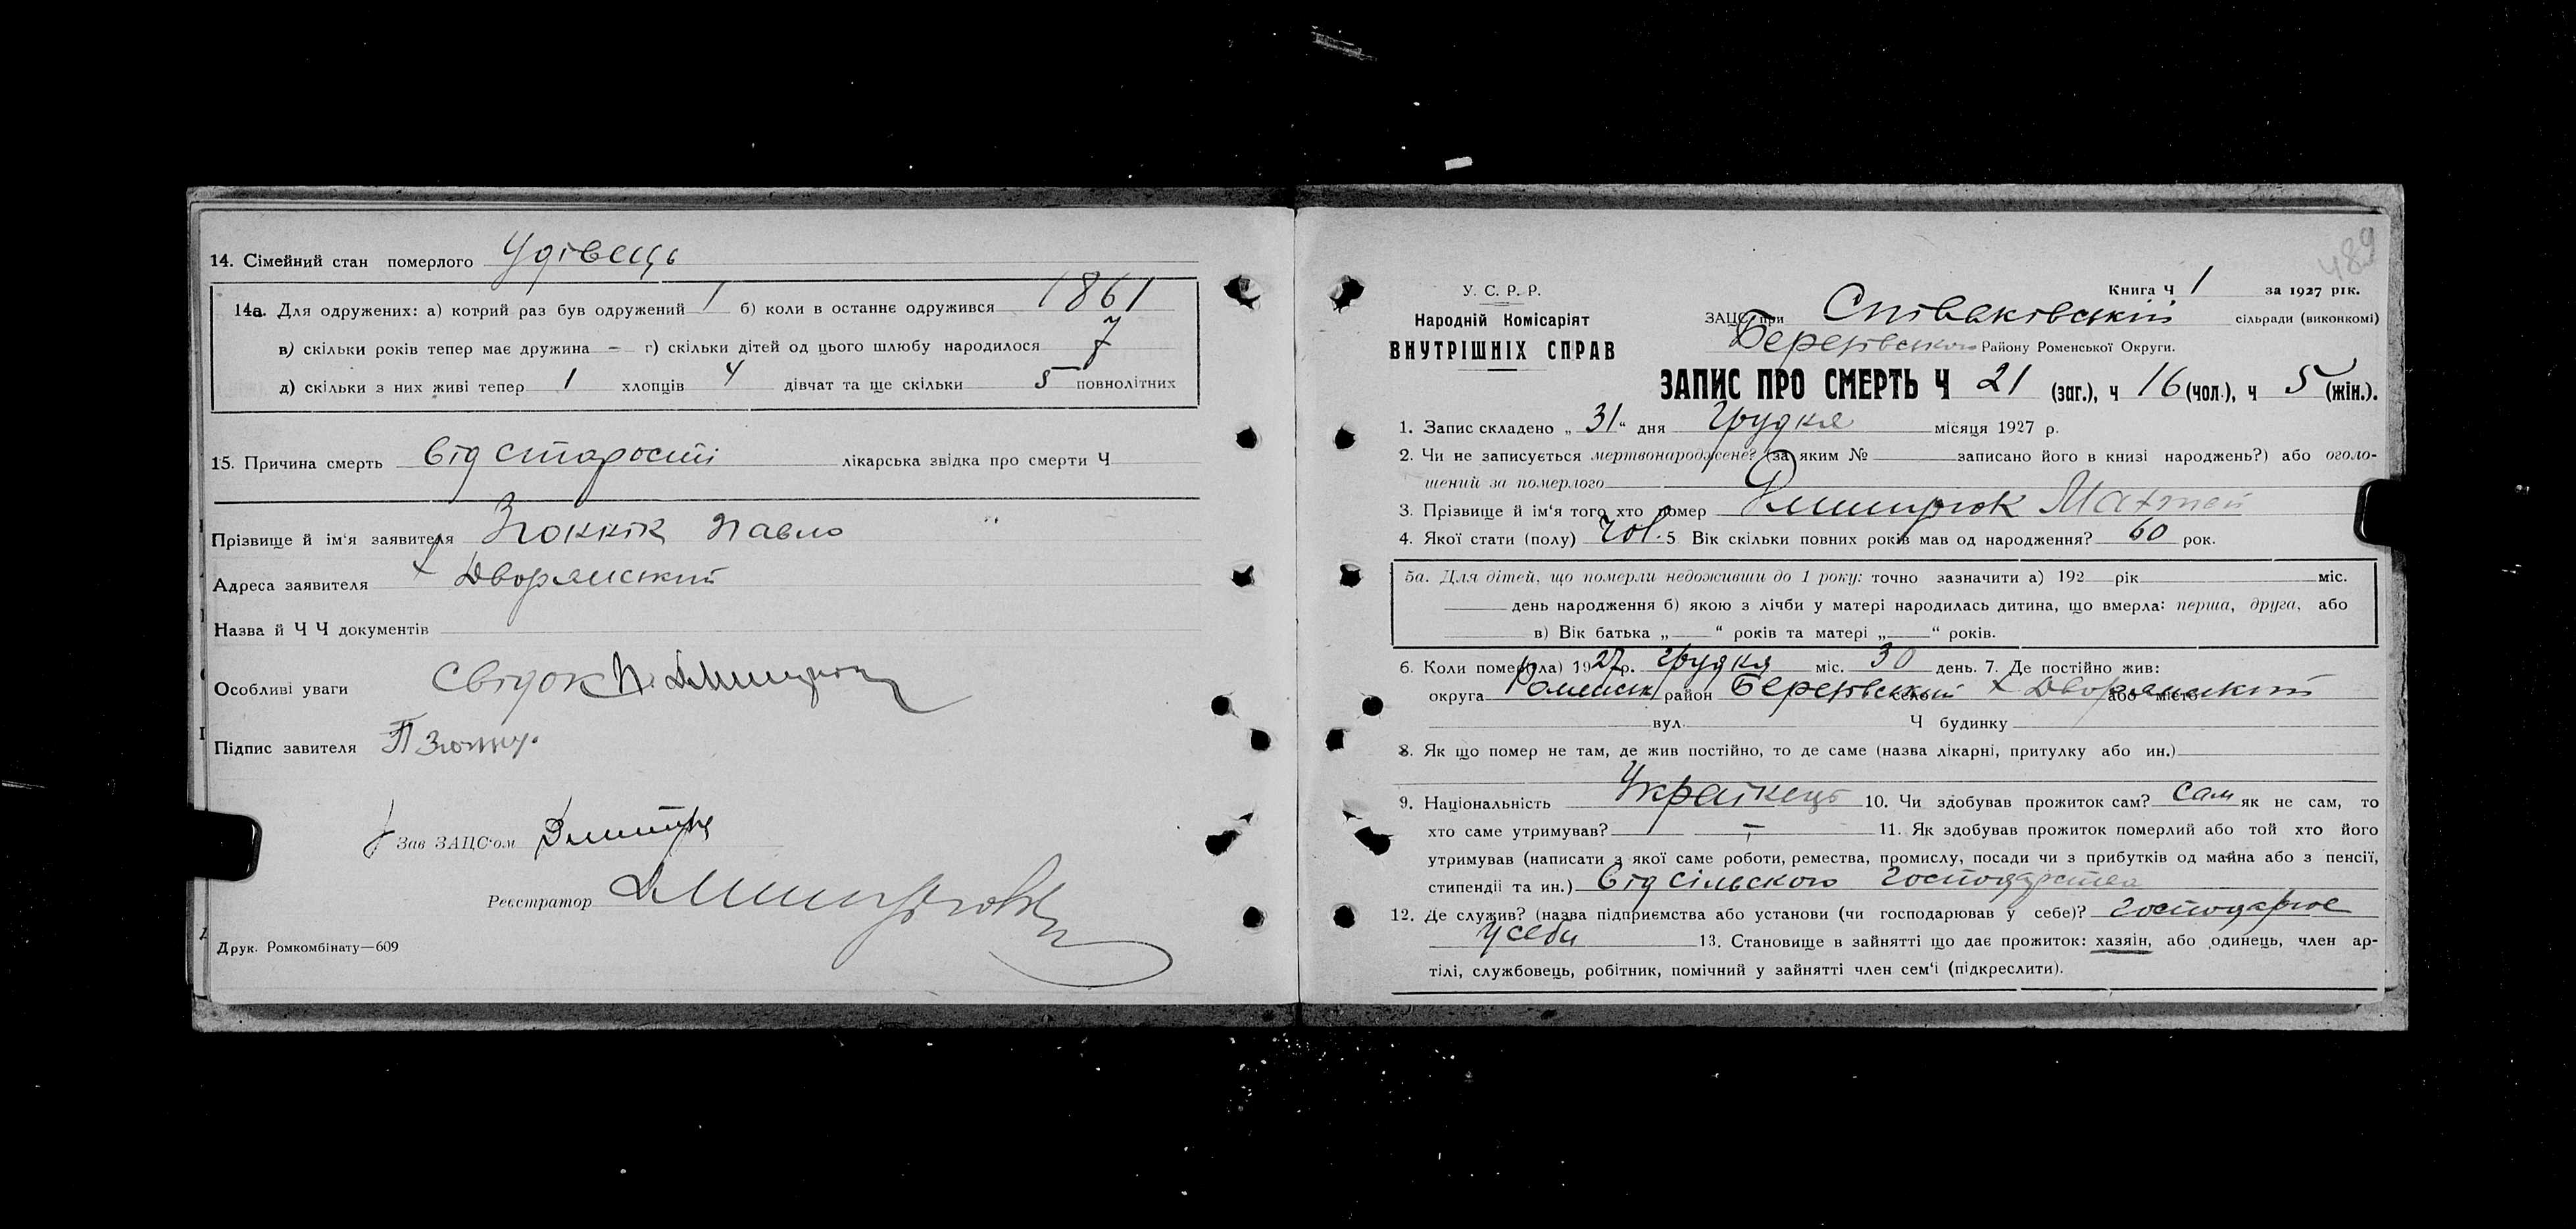 14. Сімейний стан померлого Удівець
14а. Для одружених: а) котрий раз був одружений 1 б) коли в останнє одружився 1861
в) скільки років тепер має дружина – г) скільки дітей од цього шлюбу народилося 7
д) скільки з них живі тепер 1 хлопців 4 дівчат та ще скільки 5 повнолітних
15. Причина смерть від старости лікарська звідка про смерти Ч
Прізвище й ім'я заявителя Павло
Адреса заявителя х Дворянський
Назва й Ч Ч документів
Особливі уваги Свідок
Підпис завителя П
Зав ЗАЦС'ом
Реєстратор
Друк. Ромкомбінату—609
489
У. С. Р. Р.
Народній Комісаріят
ВНУТРІШНІХ СПРАВ
Книга Ч 1 за 1927 рік.
ЗАЦС при Співаківській сільради (виконкомі)
Березівського Району Роменської Округи.
ЗАПИС ПРО СМЕРТЬ Ч 21 (заг.), ч 16 (чол.), ч 5 (жін.).
1. Запис складено „ 31 " дня Грудня місяця 1927 р.
2. Чи не записується мертвонароджене? (за яким № записано його в книзі народжень?) або оголо-
шений за померлого
3. Прізвище й ім'я того хто помер Дмитрюк Матвей
4. Якої стати (полу) чол. 5 Вік скільки повних років мав од народження? 60 рок.
5а. Для дітей, що померли недоживши до 1 року: точно зазначити а) 192 рік міс.
день народження б) якою з лічби у матері народилась дитина, що вмерла: перша, друга, або
в) Вік батька „ " років та матері „ " років.
6. Коли помер(ла) 1927 р. Грудня міс. 30 день. 7. Де постійно жив:
округа Роменськ район Березівський село х Дворянський або місто
вул. Ч будинку
8. Як що помер не там, де жив постійно, то де саме (назва лікарні, притулку або ин.)
9. Національність Українець 10. Чи здобував прожиток сам? Сам як не сам, то
хто саме утримував? – 11. Як здобував прожиток померлий або той хто його
утримував (написати з якої саме роботи, ремества, промислу, посади чи з прибутків од майна або з пенсії,
стипендії та ин.) від сільского господарства
12. Де служив? (назва підприємства або установи (чи господарював у себе)? господарює
у себи 13. Становище в зайнятті що дає прожиток: хазяін, або одинець, член ар-
тілі, службовець, робітник, помічний у зайнятті член сем'і (підкреслити).